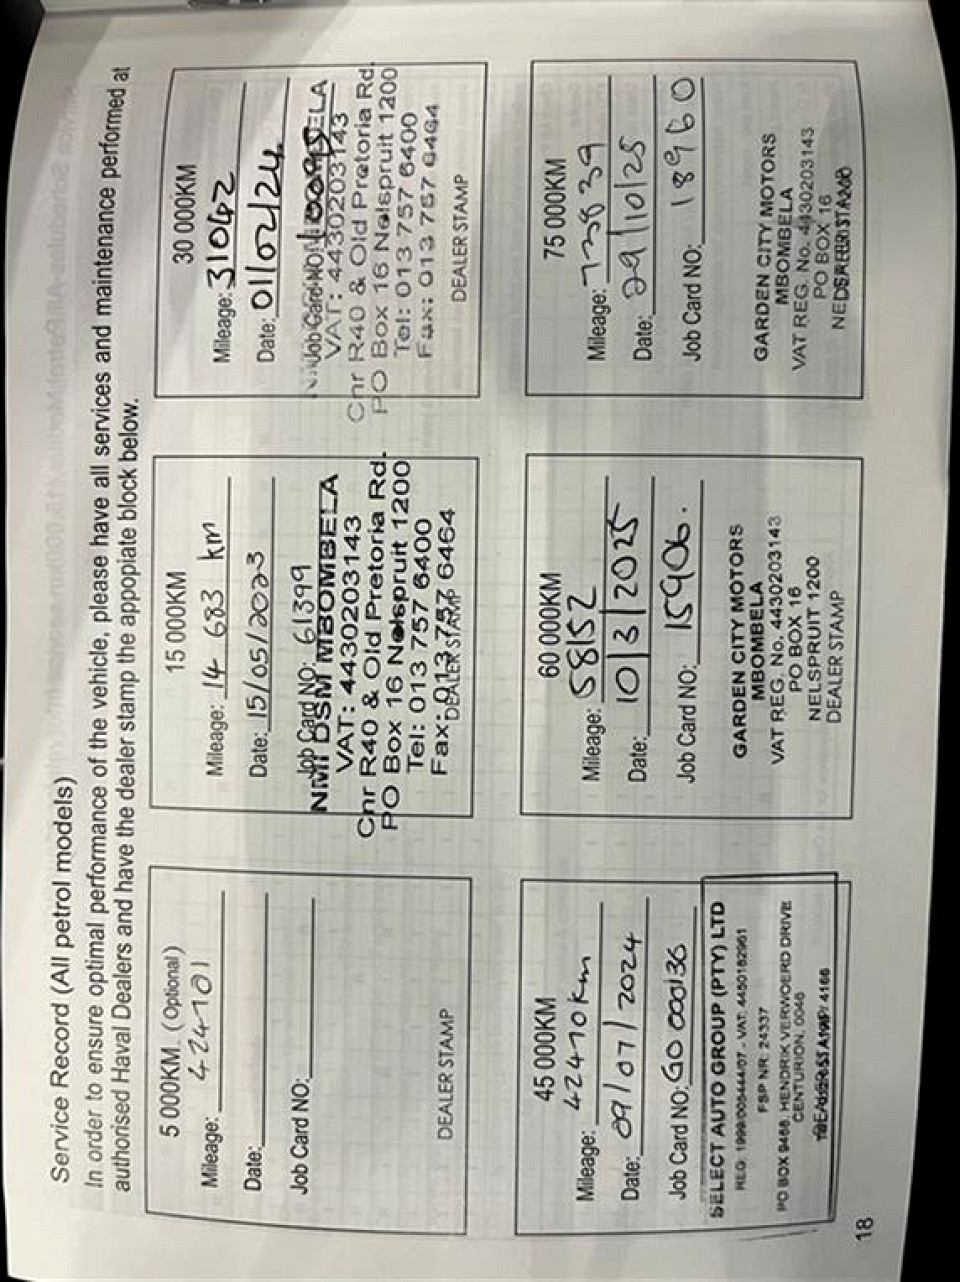 Service Record (All petrol models)
In order to ensure optimal performance of the vehicle, please have all services and maintenance performed at
authorised Haval Dealers and have the dealer stamp the appopiate block below.
5 000KM (Optional)
Mileage: 424701
Date:
Job Card NO:
DEALER STAMP
15 000KM
Mileage: 14 683 km
Date: 15/05/2023
Job Card NO: 61399
NMI DSM MBOMBELA
VAT: 4430203143
Cnr R40 & Old Pretoria Rd.
PO Box 16 Nelspruit 1200
Tel: 013 757 6400
Fax: 013 757 6464
DEALER STAMP
30 000KM
Mileage: 31042
Date: 01/02/24
Job Card NO:
VAT: 4430203143
Cnr R40 & Old Pretoria Rd.
PO Box 16 Nelspruit 1200
Tel: 013 757 6400
Fax: 013 757 6464
DEALER STAMP
45 000KM
Mileage: 42470km
Date: 09/07/2024
Job Card NO: GO 000136
SELECT AUTO GROUP (PTY) LTD
FSP NR: 24337
PO BOX 9466, HENDRIK VERWOERD DRIVE
CENTURION, 0046
60 000KM
Mileage: 58152
Date: 10/3/2025
Job Card NO: 15906.
GARDEN CITY MOTORS
MBOMBELA
VAT REG. No. 4430203143
PO BOX 16
NELSPRUIT 1200
DEALER STAMP
75 000KM
Mileage: 73839
Date: 29/10/25
Job Card NO: 18960
GARDEN CITY MOTORS
MBOMBELA
VAT REG. No. 4430203143
PO BOX 16
18